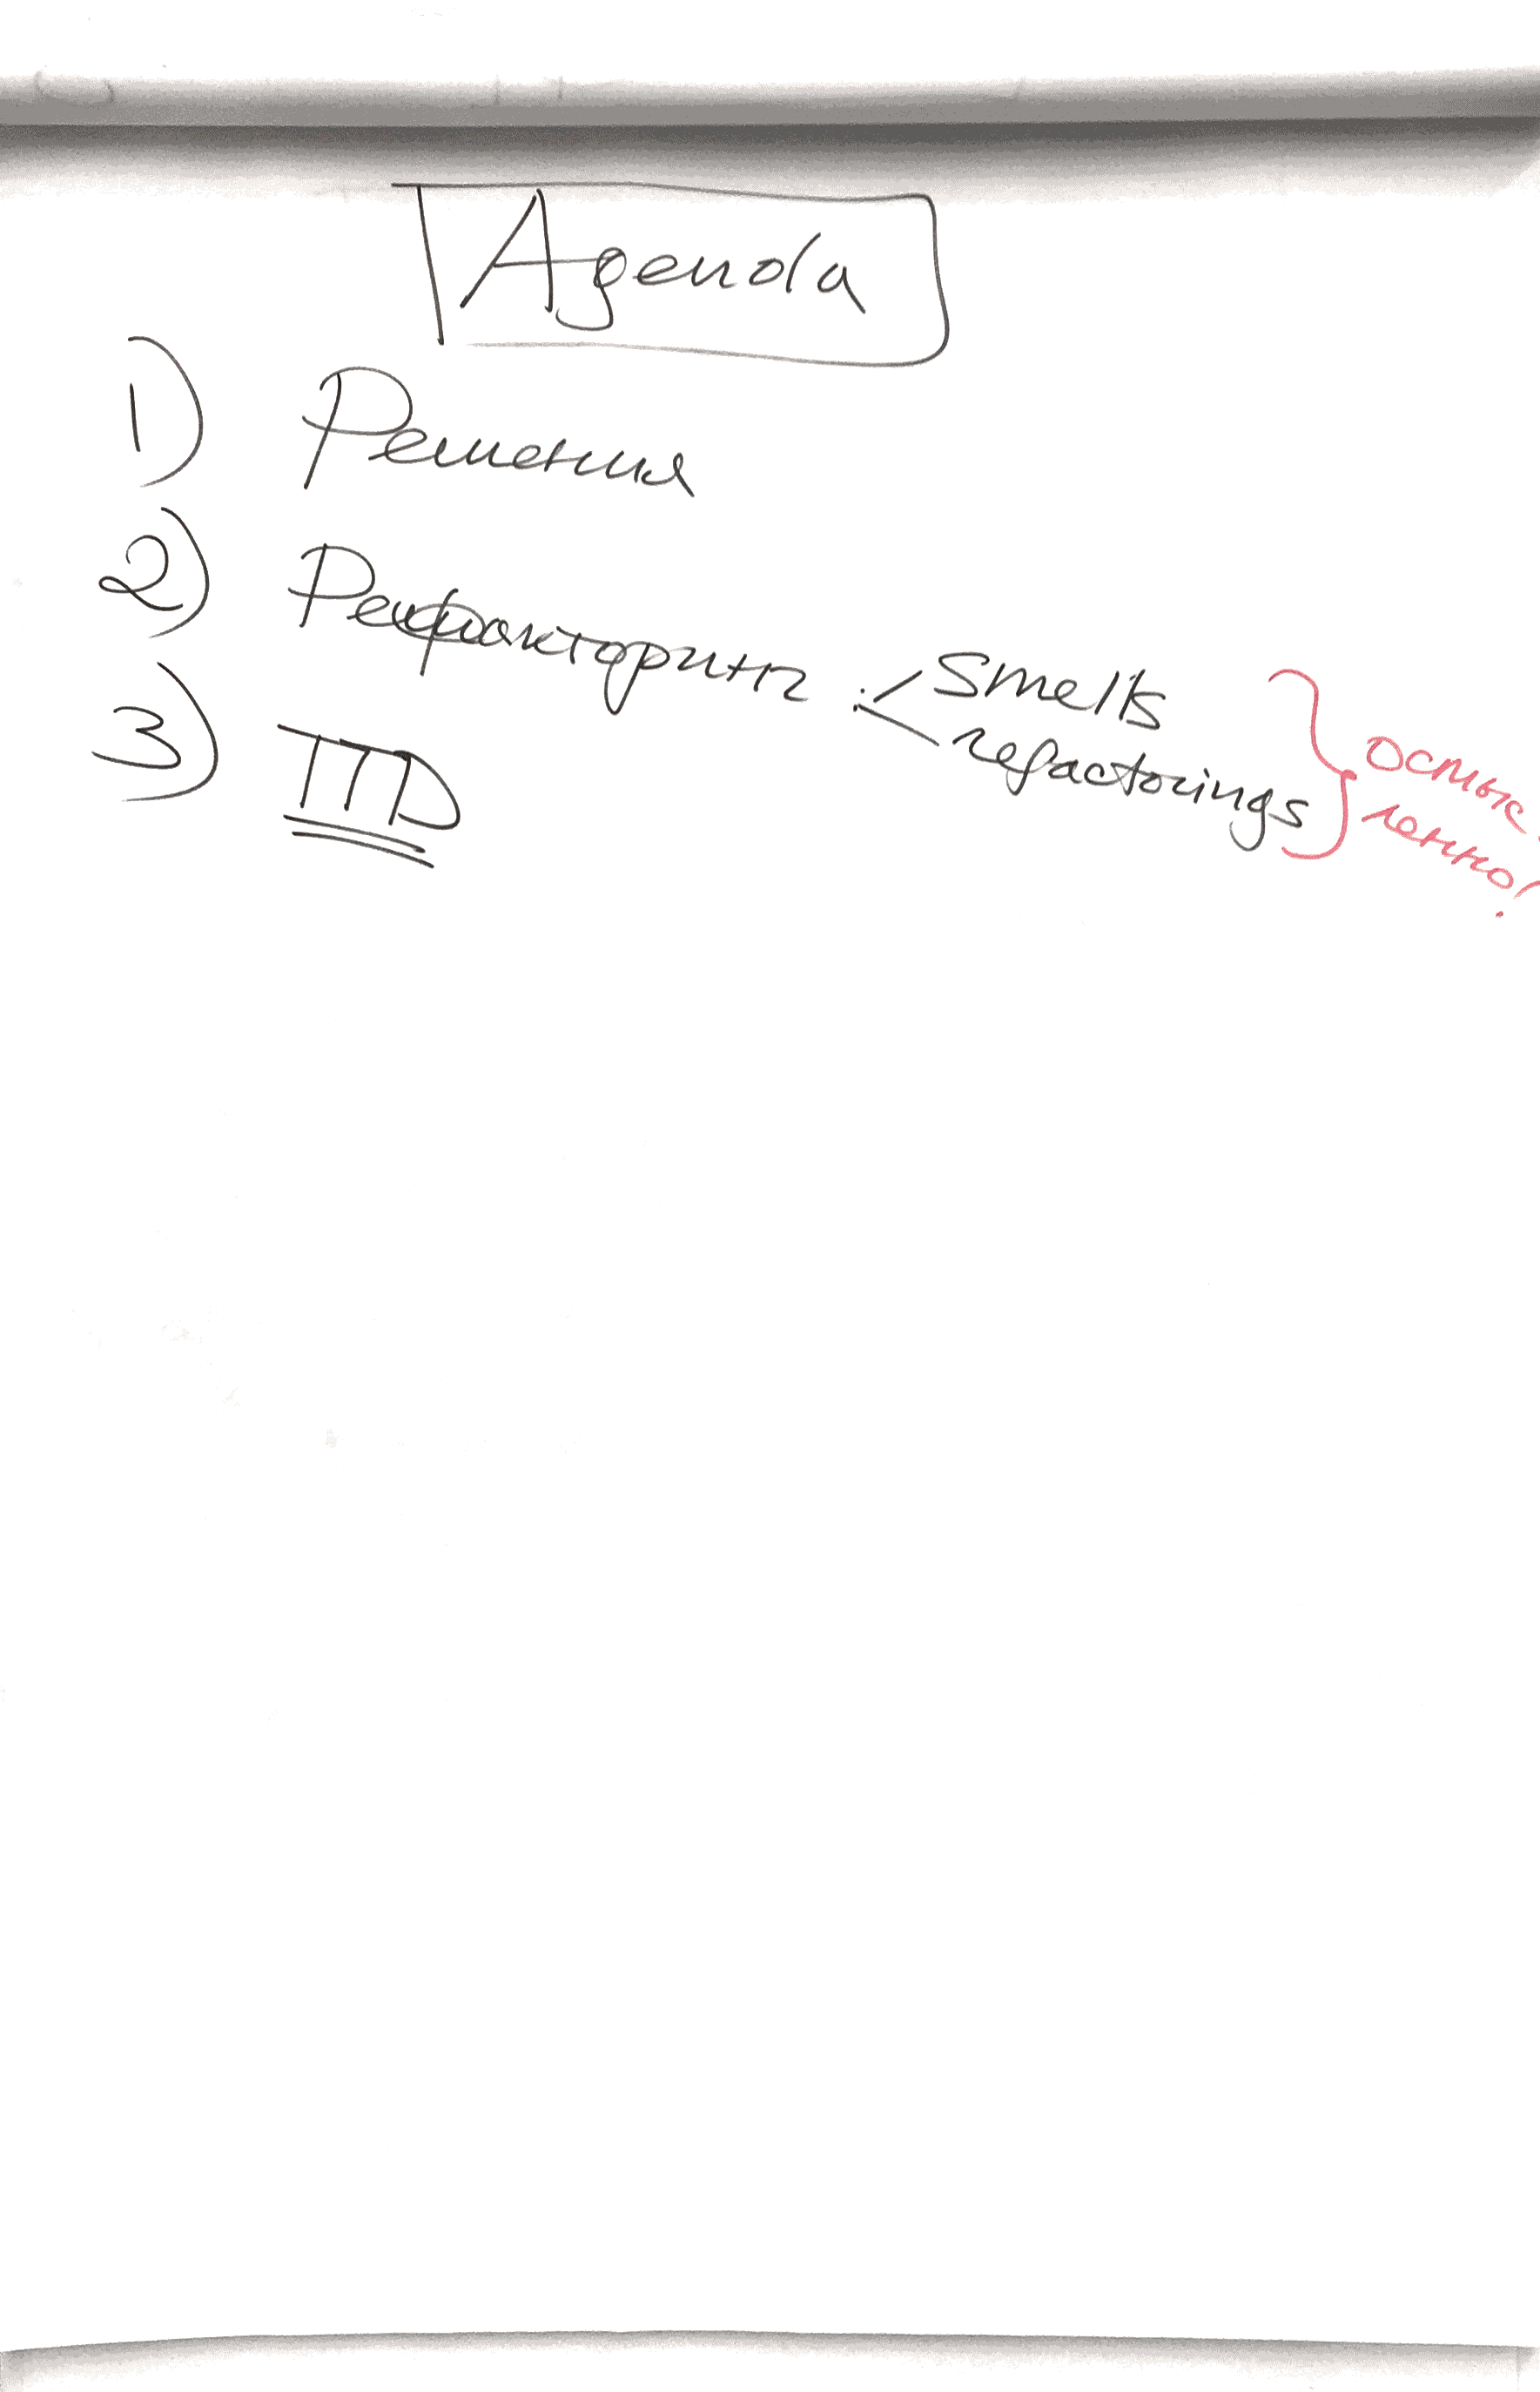 Agenda
1) Решения
2) Рефакторинг : smells
refactorings
3) TTD
ленно!